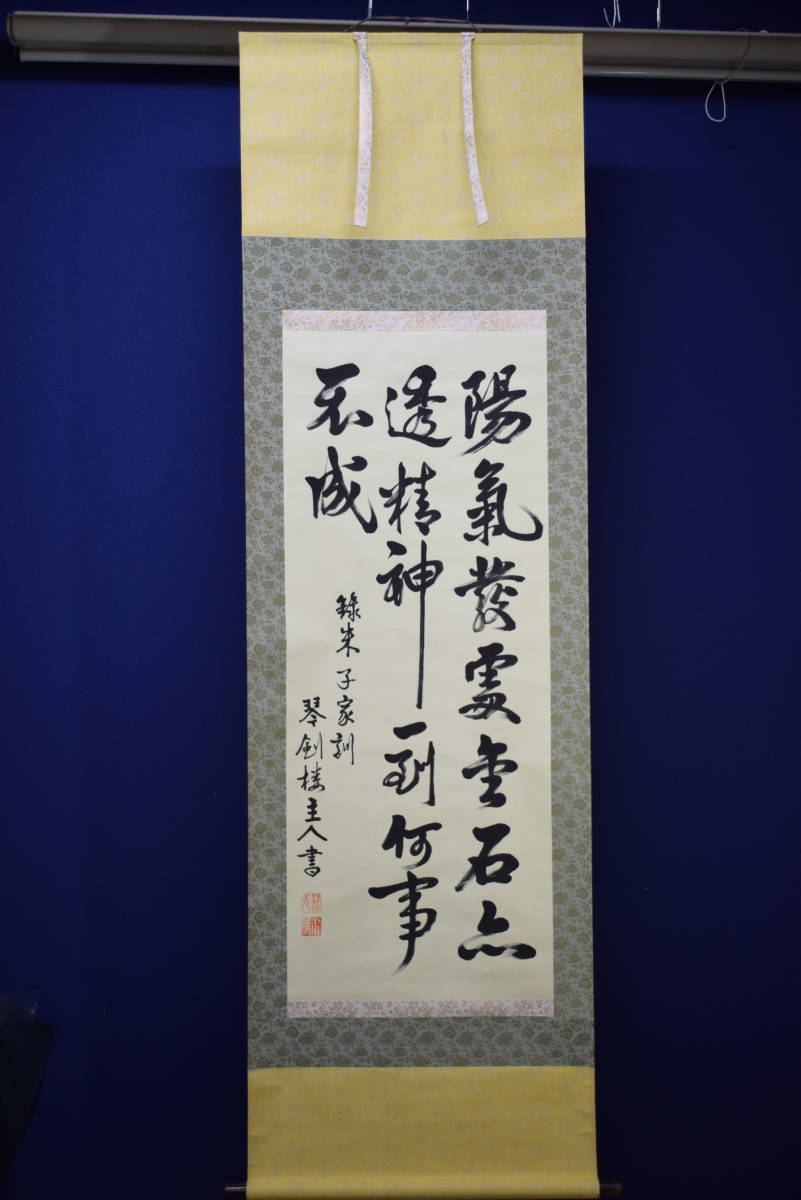 陽氣發處金石亦
透精神一到何事
不成
錄朱子家訓
琴劍楼主人書